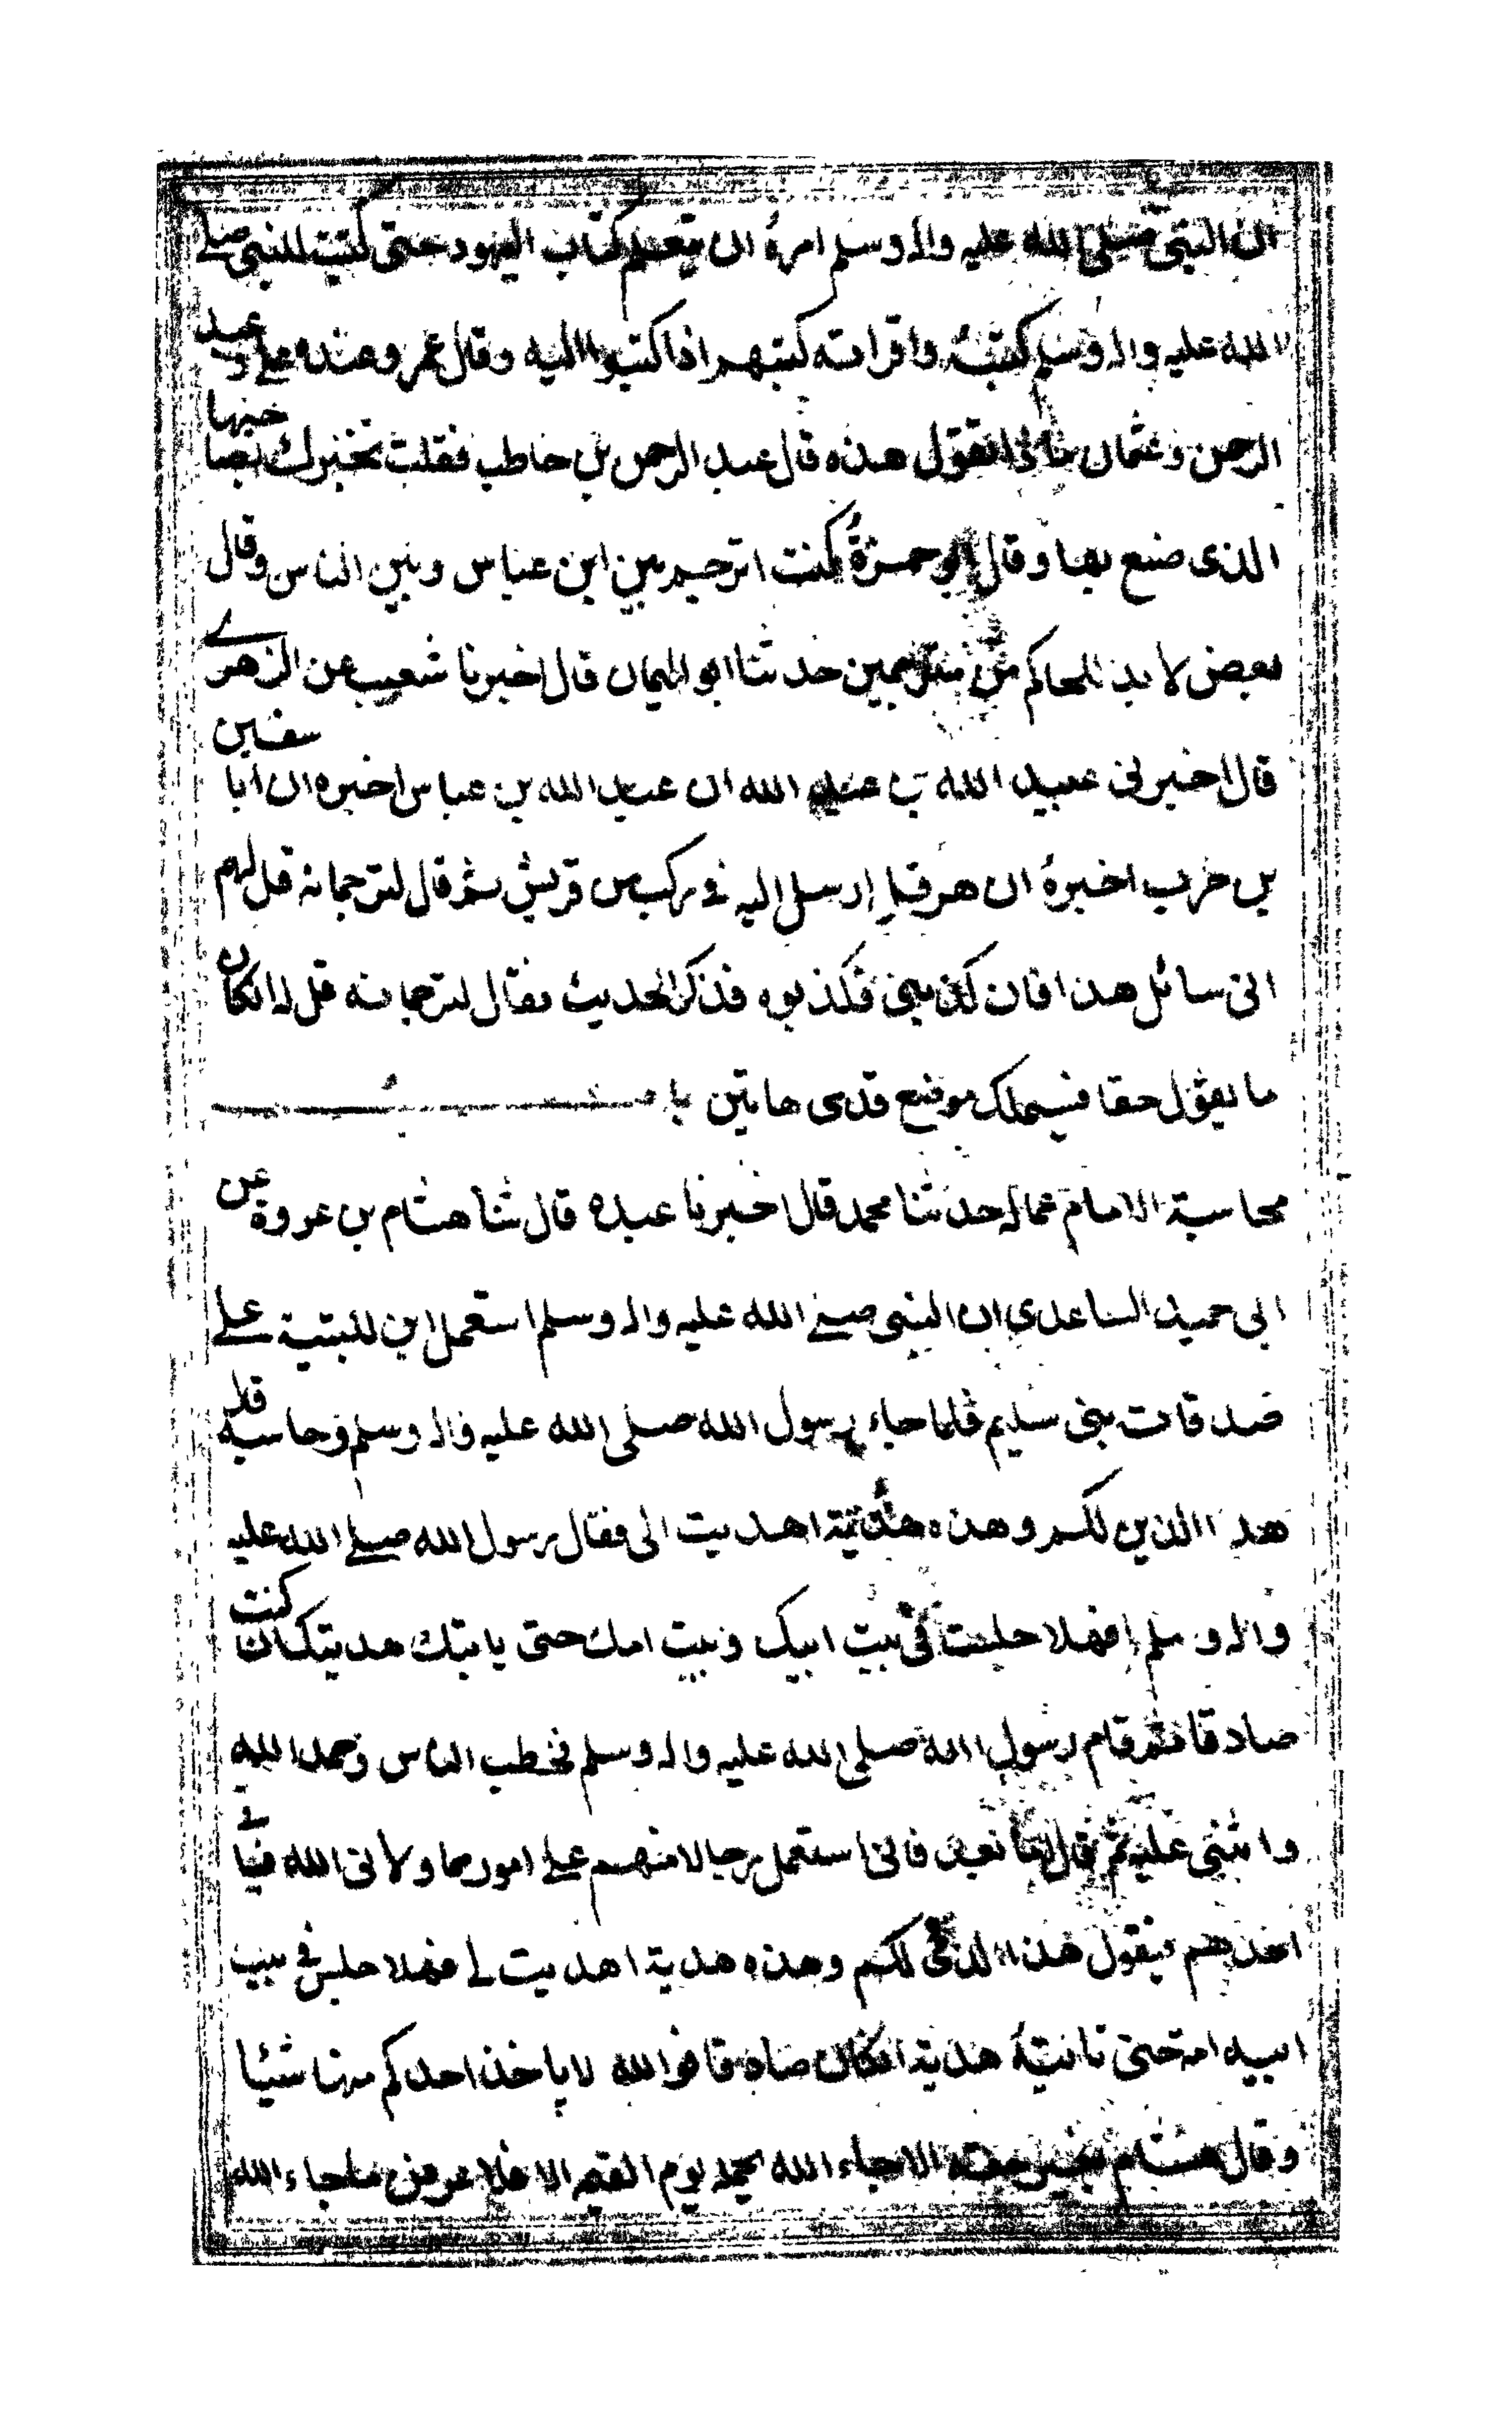 ان النبي صلى الله عليه واله وسلم امره ان يتعلم كتاب اليهود حتى كتبت للنبي صلى
الله عليه واله وسلم كتبه واقراته كتبهم اذا كتبوا اليه وقال عمر وعنده علي وعبد
الرحمن وعثمان ماذا تقول هذه قال عبد الرحمن بن حاطب فقلت تخبرك بصاحبها
الذى صنع بها وقال ابو حمزة كنت اترجم بين ابن عباس وبين الناس وقال
بعض لا بد للحاكم من مترجمين حدثنا ابو اليمان قال اخبرنا شعيب عن الزهرے
قال اخبرنى عبيد الله بن عبد الله ان عبد الله بن عباس اخبره ان ابا سفين
بن حرب اخبره ان هرقل ارسل اليه في ركب من قريش ثم قال لترجمانه قل لهم
انى سائل هذا فان كذبني فكذبوه فذكر الحديث فقال لترجمانه قل له انكان
ما تقول حقا فسيملك موضع قدمى هاتين باب
محاسبة الامام عماله حدثنا محمد قال اخبرنا عبده قال ثنا هشام بن عروة عن
ابى حميد الساعدي ان النبي صلے الله عليه واله وسلم استعمل ابن للتبية علے
صدقات بنى سليم فلما جاء رسول الله صلى الله عليه واله وسلم وحاسبه قال
هذا الذين لكم وهذه هدية اهديت الى فقال رسول الله صلے الله عليه
واله وسلم افهلا جلست في بيت ابيك وبيت امك حتى ياتيك هديتك ان كنت
صادقا ثم قام رسول الله صلى الله عليه واله وسلم فخطب الناس وحمد الله
واثنى عليه ثم قال اما بعد فانى استعمل رجالا منهم علے امور مما ولانى الله فياتے
احدهم فيقول هذا الذى لكم وهذه هدية اهديت لے فهلا جلس في بيت
ابيه امه حتى تاتيه هدية انكان صادقا فوالله لا ياخذ احدكم منها شيئا
وقال هشام بغير حقه الا جاء الله بحمله يوم القيمه الا فلا عرفن ما جاء الله